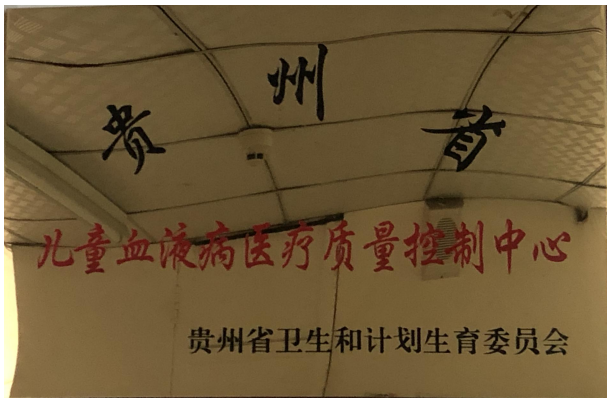 贵州省
儿童血液病医疗质量控制中心
贵州省卫生和计划生育委员会